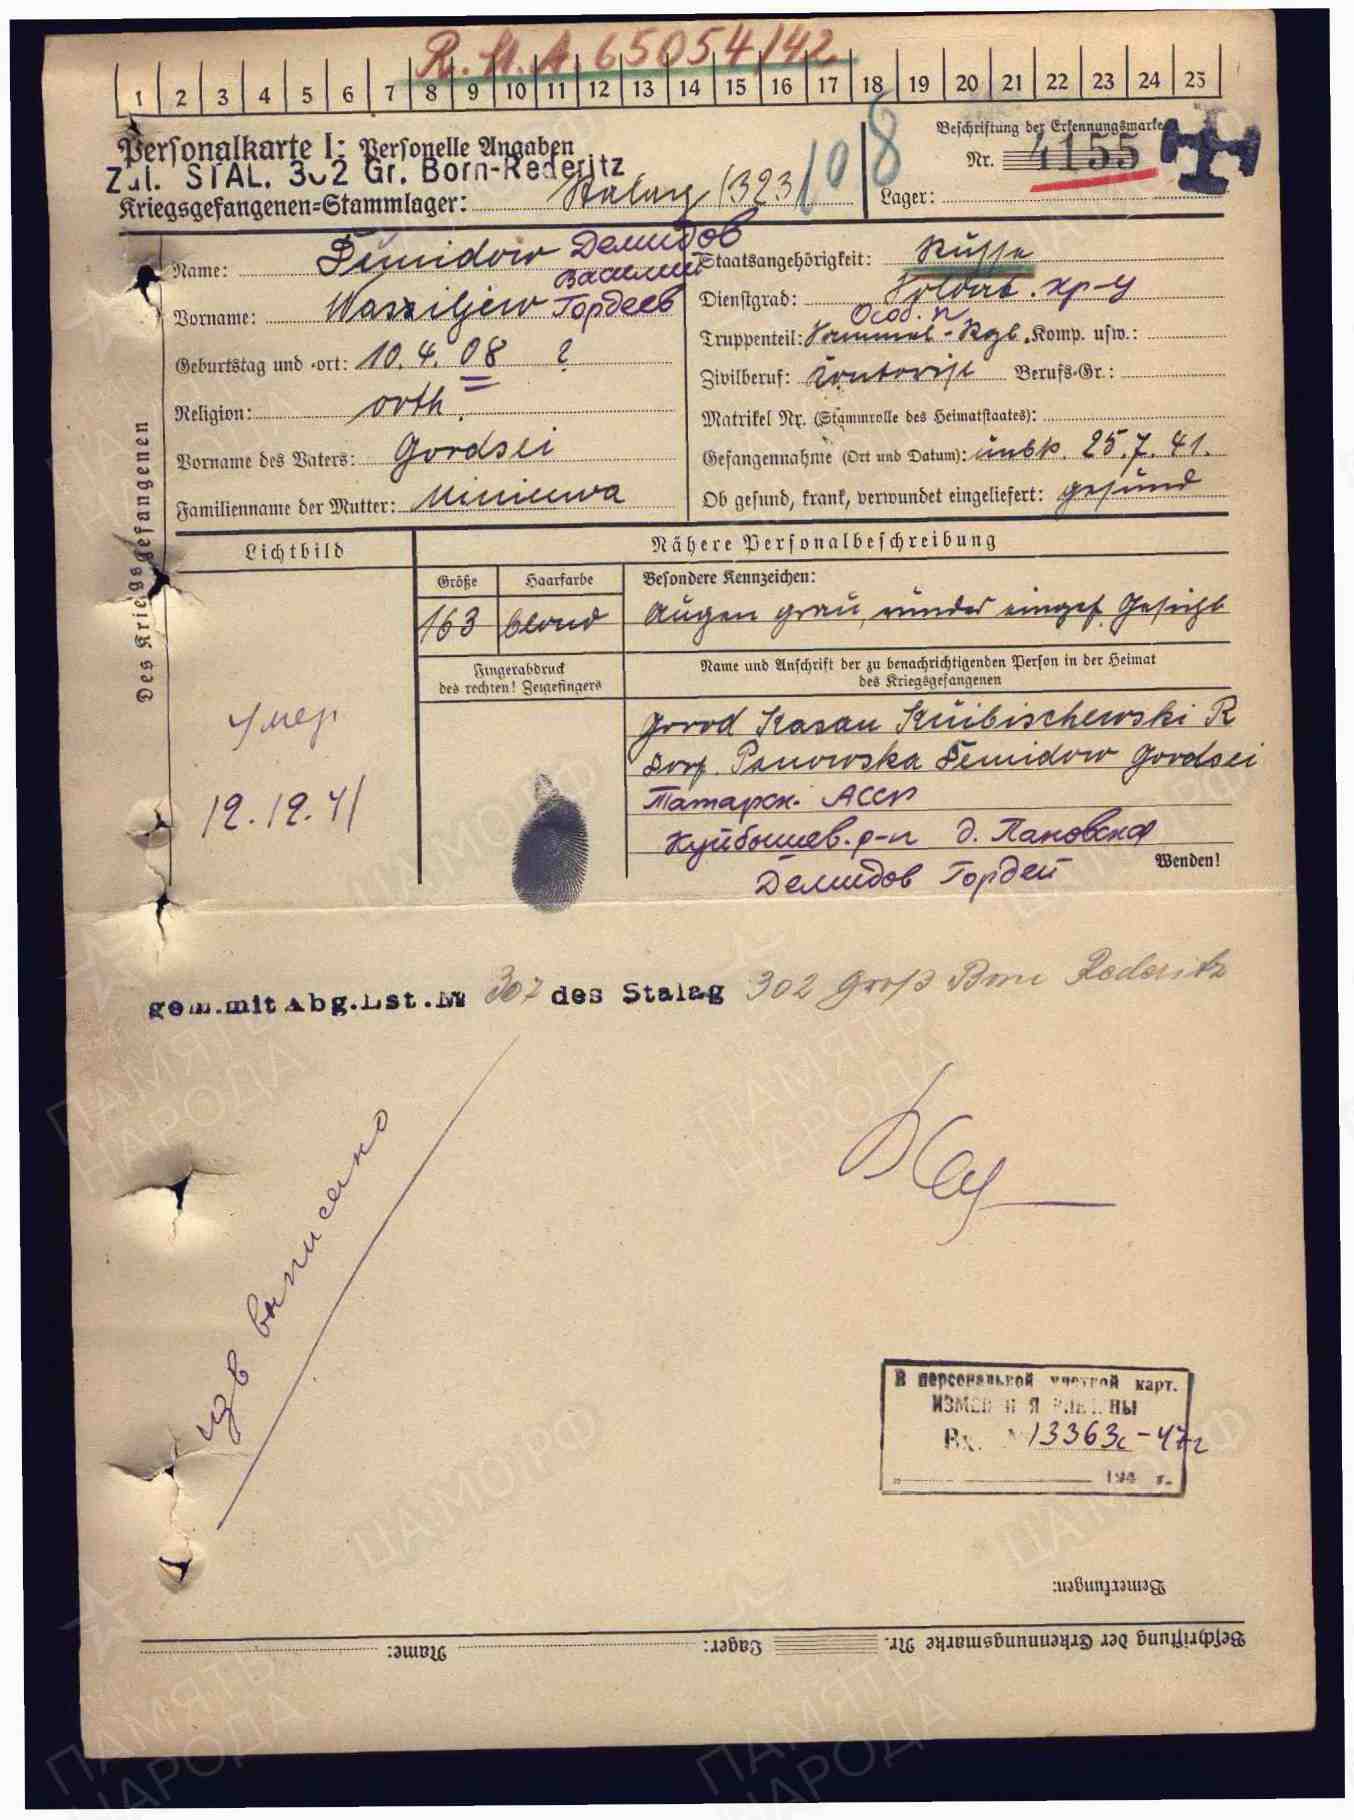 R.H.A. 65054/42
1 2 3 4 5 6 7 8 9 10 11 12 13 14 15 16 17 18 19 20 21 22 23 24 25
Personalkarte I: Personelle Angaben
Zul. STAL. 302 Gr. Born-Rederitz
Kriegsgefangenen=Stammlager: Stalag 323
108
Beschriftung der Erkennungsmarke
Nr. 4155
Lager:
Des Kriegsgefangenen
Name: Demidow Демидов
Василий
Vorname: Wassiljew Гордеев
Geburtstag und -ort: 10.4.08 ?
Religion: orth.
Vorname des Vaters: Gordsei
Familienname der Mutter:
Staatsangehörigkeit: Russe
Dienstgrad: Soldat. кр-ц
Особ. п
Truppenteil: Sammel-Rgt. Komp. usw.:
Zivilberuf: Kontorist Berufs-Gr.:
Matrikel Nr. (Stammrolle des Heimatstaates):
Gefangennahme (Ort und Datum): unbk. 25.7.41.
Ob gesund, krank, verwundet eingeliefert: gesund
Lichtbild
Nähere Personalbeschreibung
Größe Haarfarbe Besondere Kennzeichen:
163 blond Augen grau, runder eingef. Gesicht
Fingerabdruck
des rechten! Zeigefingers
Name und Anschrift der zu benachrichtigenden Person in der Heimat
des Kriegsgefangenen
Gorod Kasan Kuibischewski R
Dorf. Panowska Demidow Gordsei
Татарск. АССР
Куйбышев. р-н д. Пановска
Демидов Гордей
Wenden!
умер
12.12.41
gem.mit Abg.Lst.№ 307 des Stalag 302 Groß Born Rederitz
изв выписано
В персональной учетной карт.
ИЗМЕНЕНИЯ ВНЕСЕНЫ
Вх. № 13363с-47г
" 194 г.
Bemerkungen:
Beschriftung der Erkennungsmarke Nr. Lager: Name: